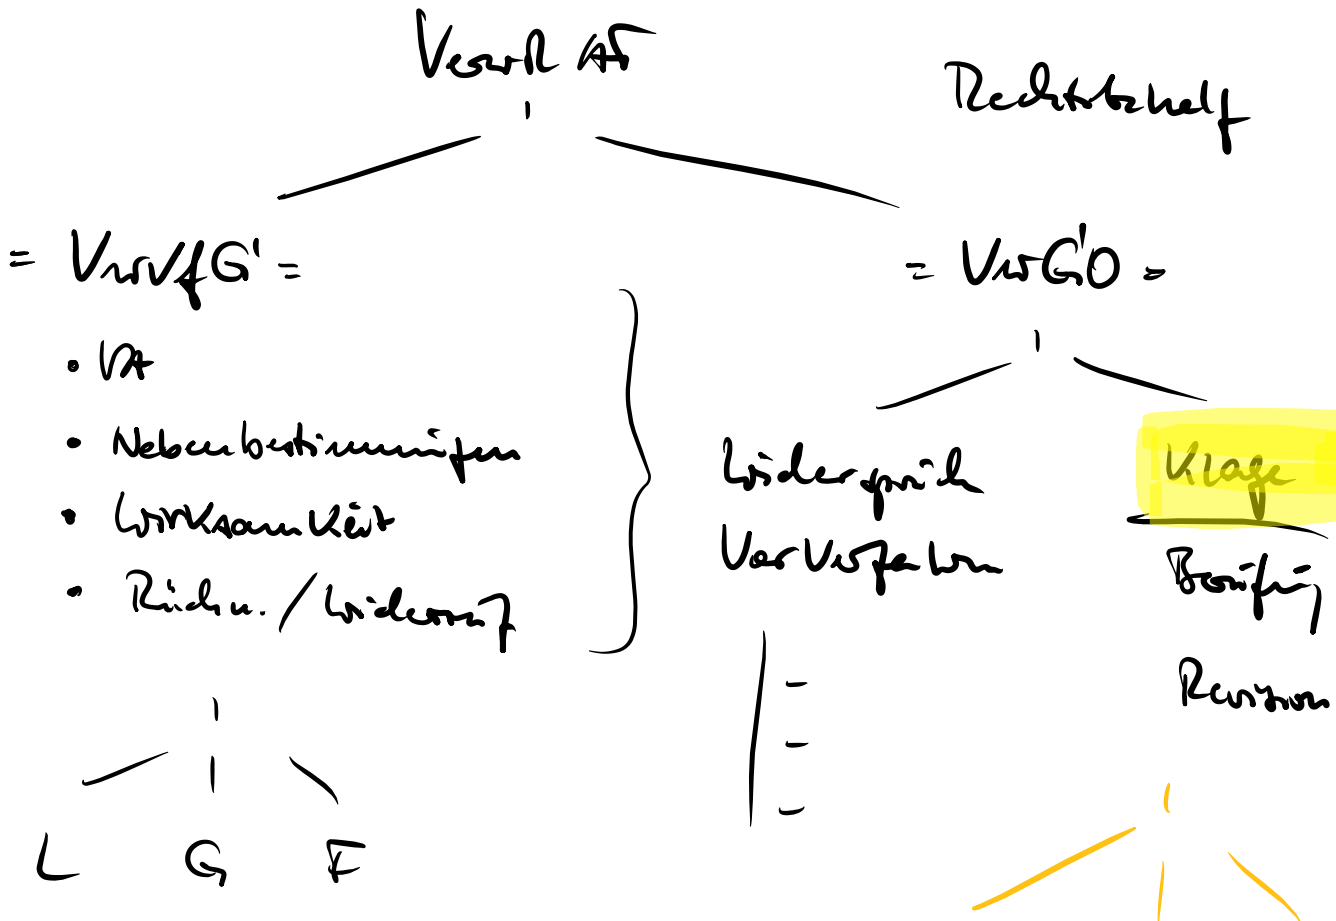 VerwR AT
Rechtsbehelf
= VwVfG =
= VwGO =
• VA
• Nebenbestimmungen
• Wirksamkeit
• Rückn. / Widerruf
L G F
Widerspruch
Vorverfahren
–
–
–
Klage
Berufung
Revision